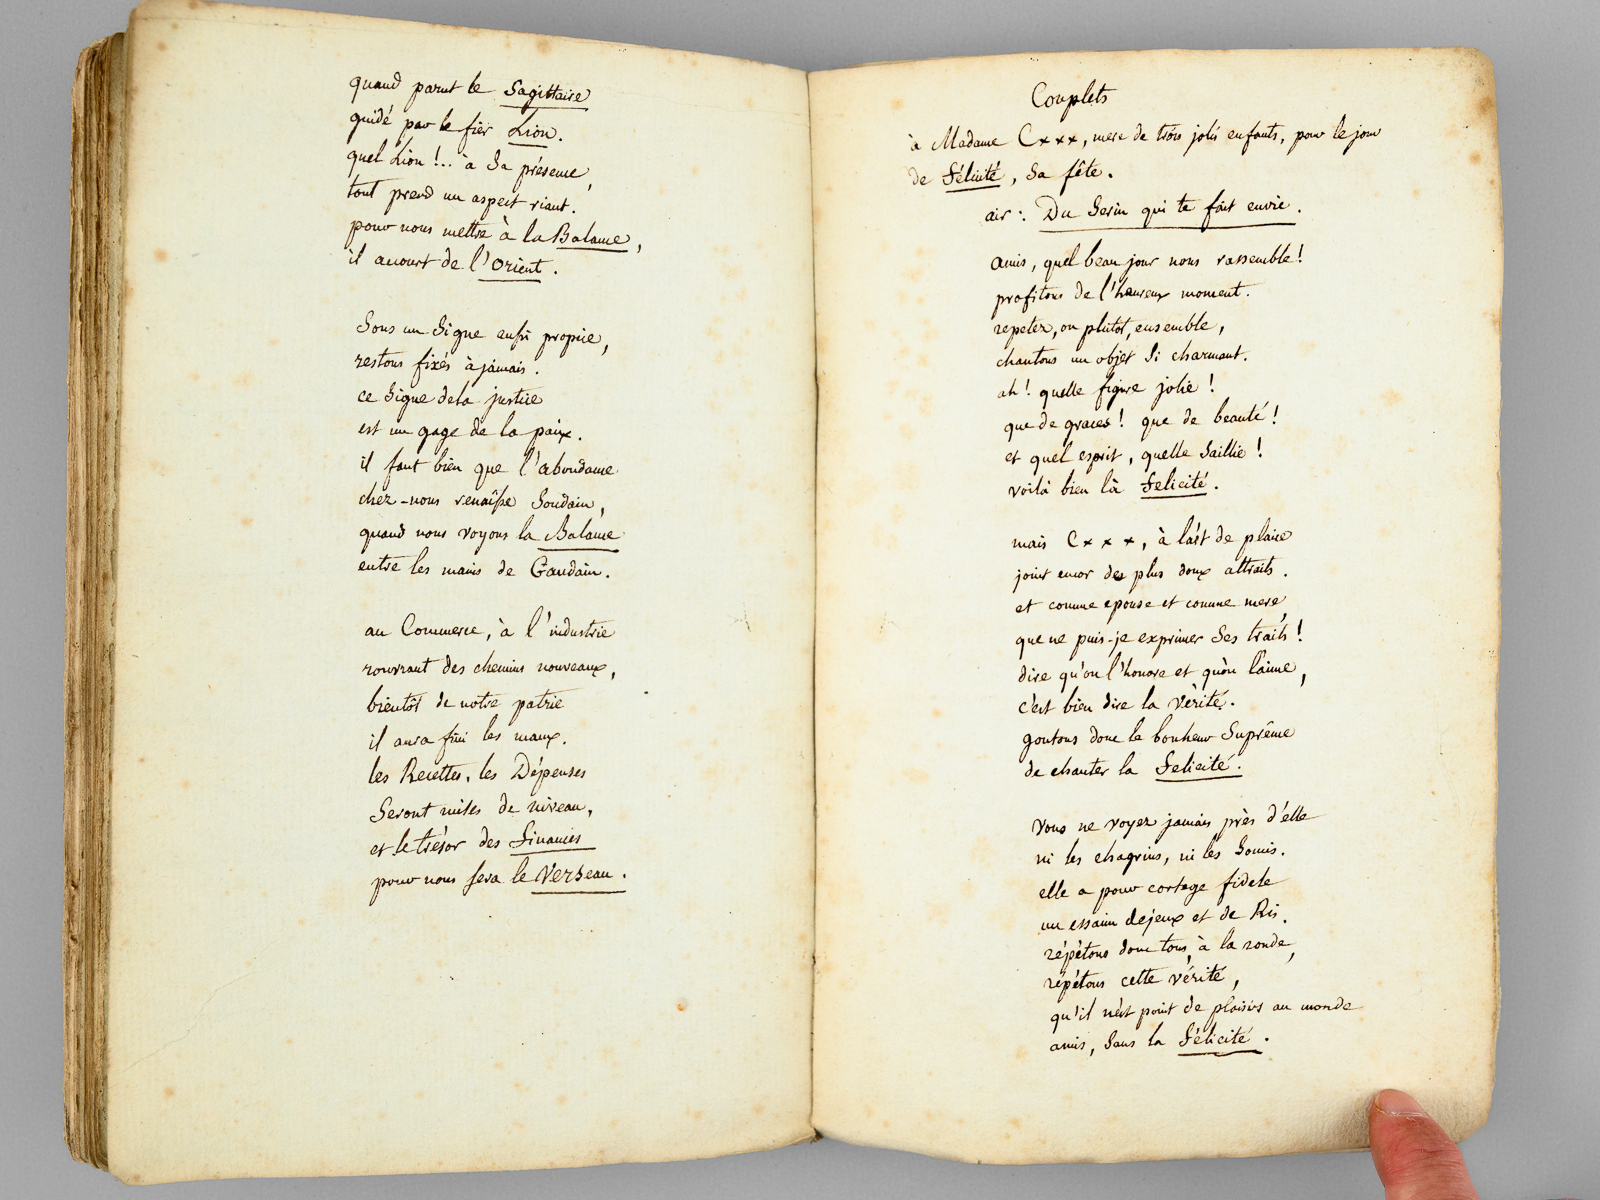 quand parut le Sagittaire
guidé par le fier Lion.
quel Lion !.. à Sa présence,
tout prend un aspect riant.
pour nous mettre à la Balance,
il accourt de l'Orient.
Sous un Signe aussi propice,
restons fixés à jamais.
ce Signe dela justice
est un gage de la paix.
il faut bien que l'abondance
chez-nous renaisse Soudain,
quand nous voyons la Balance
entre les mains de Gaudain.
au Commerce, à l'industrie
rouvrant des chemins nouveaux,
bientôt de notre patrie
il aura fini les maux.
les Recettes, les Dépenses
Seront mises de niveau,
et le trésor des Finances
pour nous sera le Verseau.
Couplets
à Madame C×××, mere de trois jolis enfants, pour le jour
de Félicité, Sa fête.
air : Du Serin qui te fait envie.
amis, quel beau jour nous rassemble !
profitons de l'heureux moment.
repeter, ou plutôt, ensemble,
chantons un objet Si charmant.
ah ! quelle figure jolie !
que de graces ! que de beauté !
et quel esprit, quelle Saillie !
voilà bien là Felicité.
mais C×××, à l'art de plaire
joint encor des plus doux attraits.
et comme epouse et comme mere,
que ne puis-je exprimer Ses traits !
dire qu'on l'honore et qu'on l'aime,
c'est bien dire la vérité.
goutons donc le bonheur Suprême
de chanter la Felicité.
Vous ne voyez jamais près d'elle
ni les chagrins, ni les Soucis.
elle a pour cortege fidele
un essaim dejeux et de Ris.
répétons donc tous, à la ronde,
répétons cette vérité,
qu'il n'est point de plaisirs au monde
amis, Sans la Félicité.